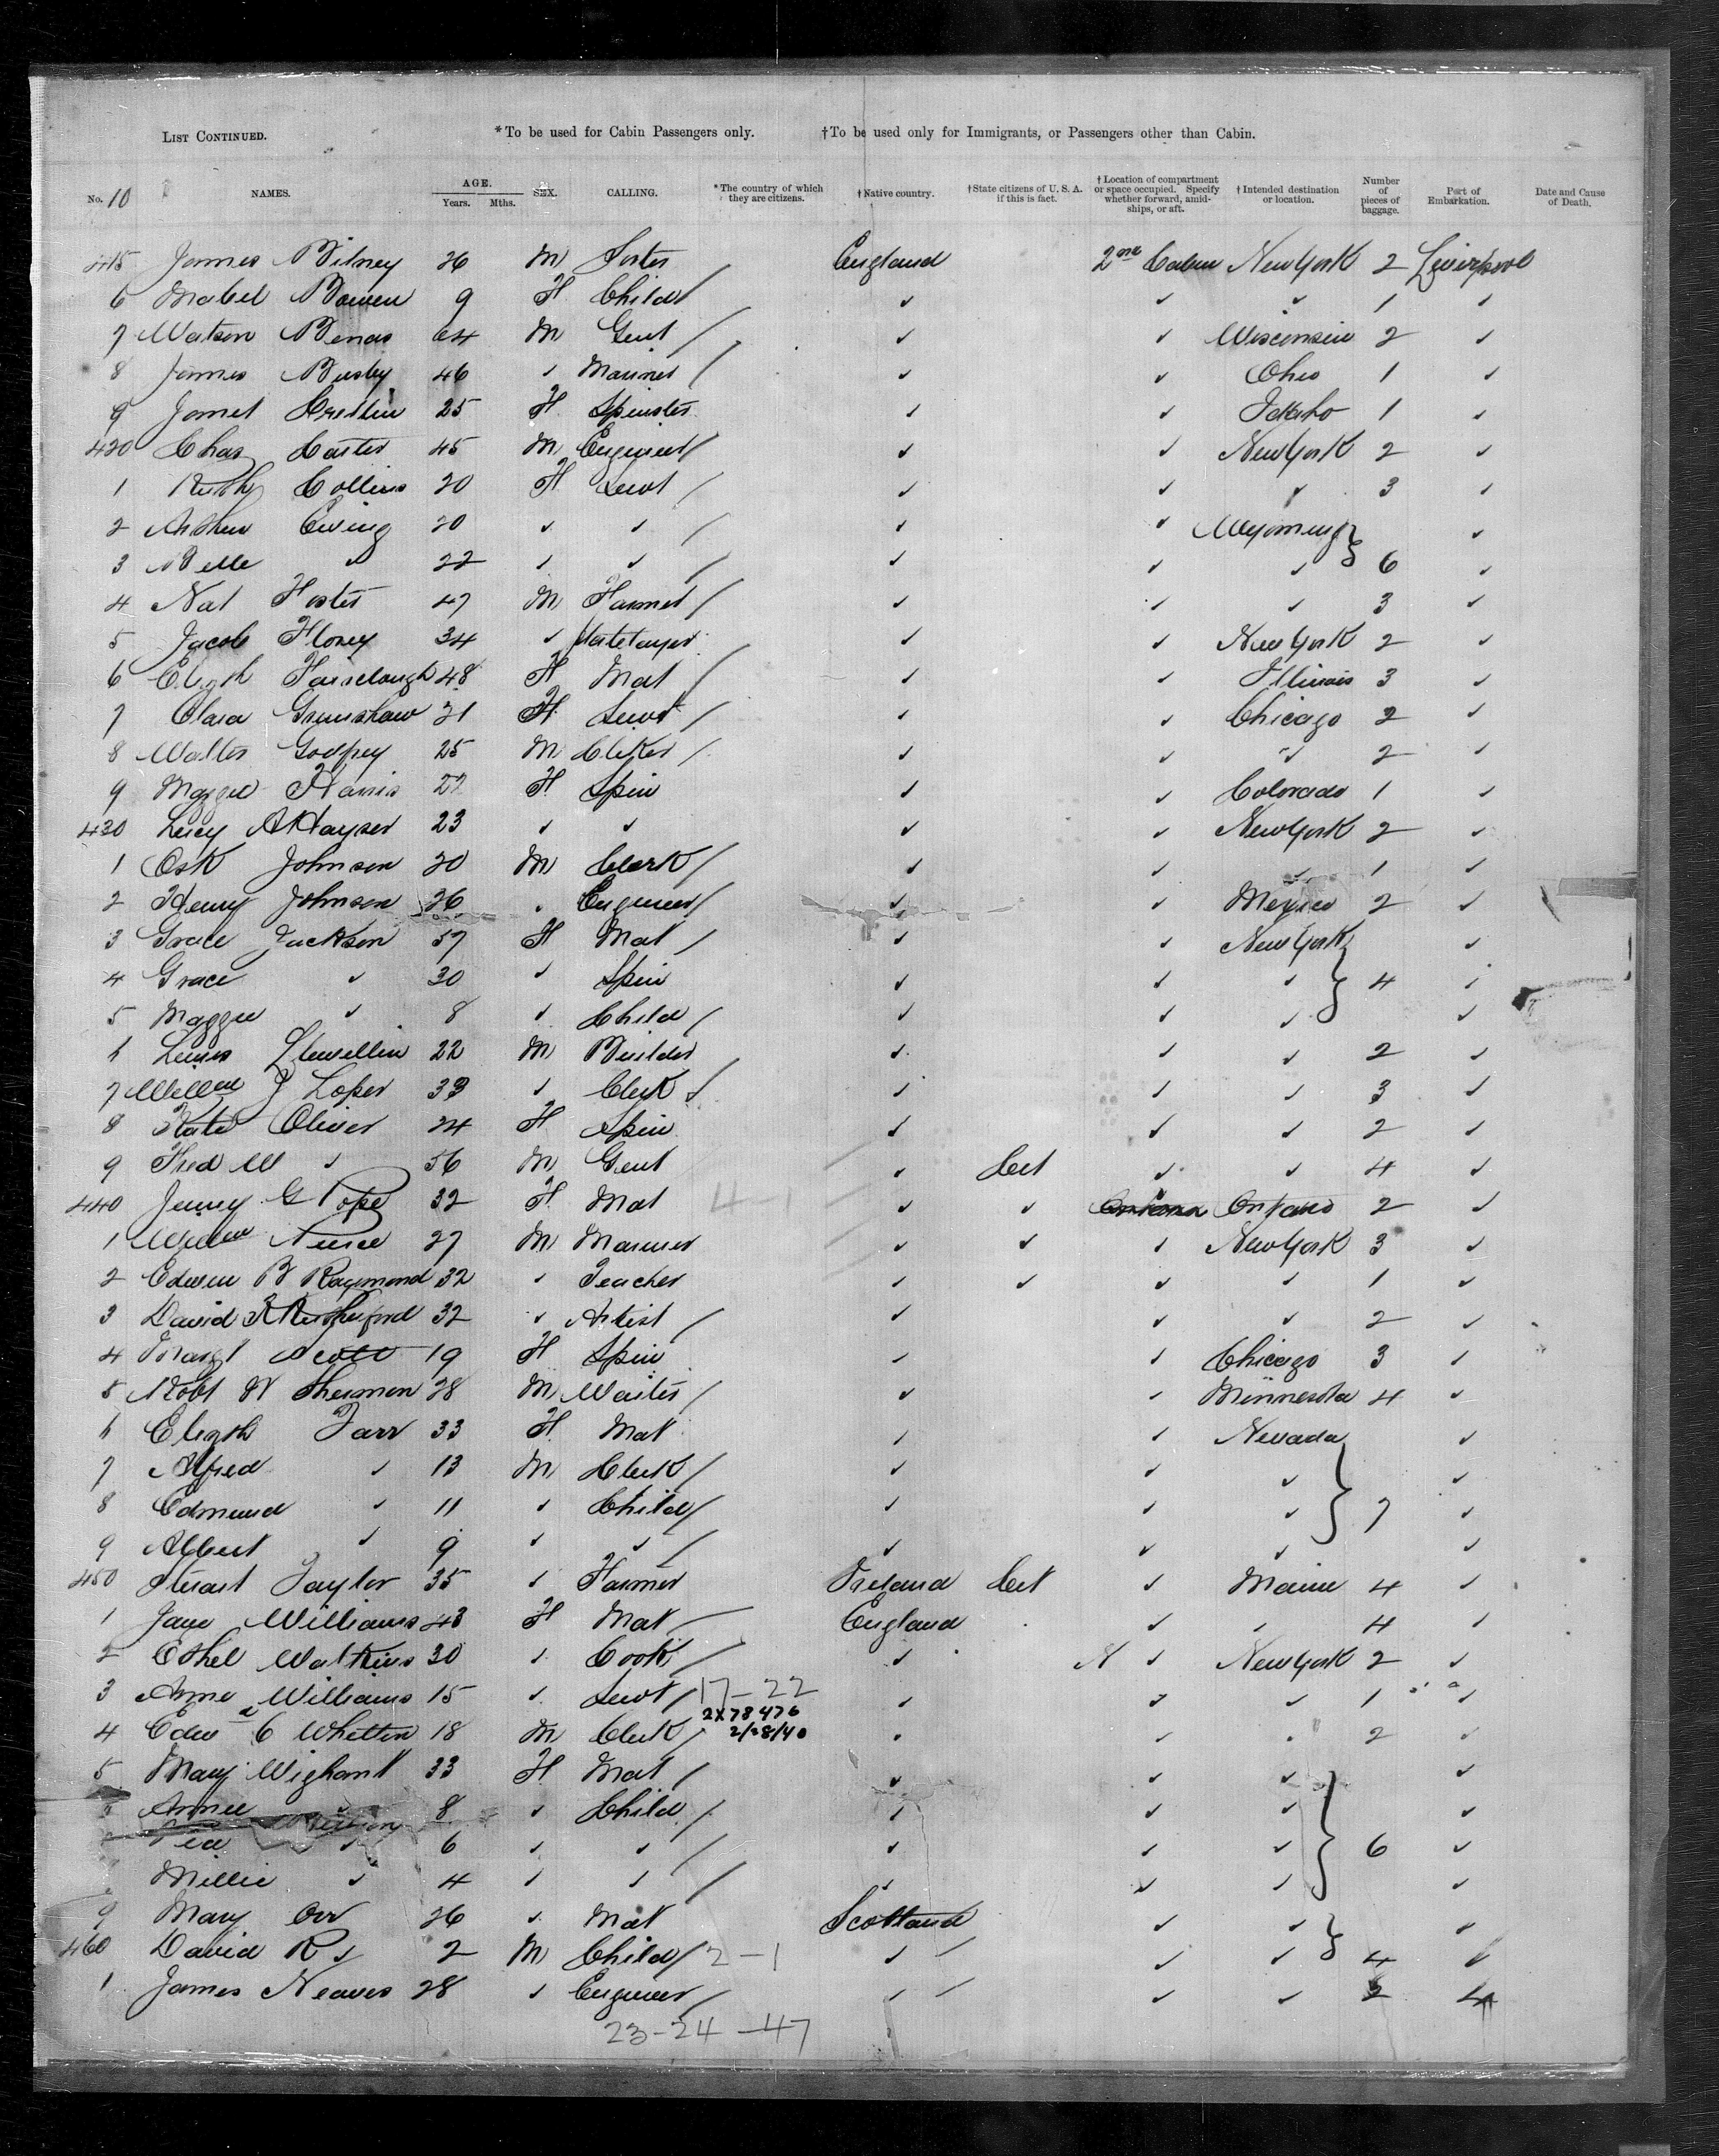 LIST CONTINUED. *To be used for Cabin Passengers only. †To be used only for Immigrants, or Passengers other than Cabin.
No. 10 NAMES. AGE. Years. Mths. SEX. CALLING. *The country of which they are citizens. †Native country. †State citizens of U. S. A. if this is fact. †Location of compartment or space occupied. Specify whether forward, amidships, or aft. †Intended destination or location. Number of pieces of baggage. Port of Embarkation. Date and Cause of Death.
415 James Bilney 26 M England 2nd Cabin New York 2 Liverpool
6 Mabel Bowen 9 F Child / ✓ ✓ ✓ 1 ✓
7 Watson 64 M Gent / ✓ ✓ Wisconsin 2 ✓
8 James Busby 46 ✓ Mariner / ✓ ✓ Ohio 1 ✓
9 Janet 25 F Spinster ✓ ✓ Idaho 1 ✓
420 Chas Carter 45 M Engineer / ✓ ✓ New York 2 ✓
1 Ruth Collins 20 F Servt / ✓ ✓ ✓ 3 ✓
2 Arthur Ewing 20 ✓ ✓ / ✓ ✓ Wyoming } ✓
3 Belle ✓ 22 ✓ ✓ / ✓ ✓ ✓ 6 ✓
4 Nat Foster 47 M Farmer / ✓ ✓ ✓ 3 ✓
5 Jacob Florey 34 ✓ Platelayer ✓ ✓ New York 2 ✓
6 Elizth Fairclough 48 F Mat / ✓ ✓ Illinois 3 ✓
7 Clara Grimshaw 21 F Servt / ✓ ✓ Chicago 2 ✓
8 Walter Godfrey 25 M / ✓ ✓ ✓ 2 ✓
9 Maggie Harris 22 F Spin ✓ ✓ Colorado 1 ✓
430 Lucy A Hayser 23 ✓ ✓ ✓ ✓ New York 2 ✓
1 Osk Johnson 20 M Clerk / ✓ ✓ ✓ 1 ✓
2 Henry Johnson 26 ✓ Engineer / ✓ ✓ Mexico 2 ✓
3 Grace Jackson 57 F Mat / ✓ ✓ New York } ✓
4 Grace ✓ 30 ✓ Spin ✓ ✓ ✓ 4 ✓
5 Maggie ✓ 8 ✓ Child / ✓ ✓ ✓ ✓
6 Lewis Llewellin 22 M Builder ✓ ✓ ✓ 2 ✓
7 Willm J Loper 33 ✓ Clerk / ✓ ✓ ✓ 3 ✓
8 Kate Oliver 24 F Spin ✓ ✓ ✓ 2 ✓
9 Fred W ✓ 56 M Gent ✓ Cit ✓ ✓ 4 ✓
440 Jenny G Pope 32 F Mat 4-1 ✓ ✓ Ontario 2 ✓
1 27 M Mariner ✓ ✓ ✓ New York 3 ✓
2 Edwin B Raymond 32 ✓ Teacher ✓ ✓ ✓ ✓ 1 ✓
3 David R Rutherford 32 ✓ Artist / ✓ ✓ ✓ 2 ✓
4 Margt Scott 19 F Spin ✓ ✓ Chicago 3 ✓
5 Robt W Sherman 28 M Waiter / ✓ ✓ Minnesota 4 ✓
6 Elizth Tarr 33 F Mat ✓ ✓ Nevada } ✓
7 Alfred ✓ 13 M Clerk / ✓ ✓ ✓ ✓
8 Edmund ✓ 11 ✓ Child / ✓ ✓ ✓ 7 ✓
9 Albert ✓ 9 ✓ ✓ / ✓ ✓ ✓ ✓
450 Stuart Taylor 35 ✓ Farmer Ireland Cit ✓ Maine 4 ✓
1 Jane Williams 43 F Mat / England ✓ ✓ 4 ✓
2 Ethel Watkins 30 ✓ Cook / ✓ N ✓ New York 2 ✓
3 Anne Williams 15 ✓ Servt / 17-22 ✓ ✓ ✓ 1 ✓
4 Edwd C Whetten 18 M Clerk / 2X78476 2/28/40 ✓ ✓ ✓ 2 ✓
5 Mary Wighant 33 F Mat / ✓ ✓ ✓ } ✓
Annie ✓ 8 ✓ Child / ✓ ✓ ✓ ✓
✓ 6 ✓ ✓ / ✓ ✓ ✓ 6 ✓
Millie ✓ 4 ✓ ✓ / ✓ ✓ ✓ ✓
9 Mary Orr 26 ✓ Mat Scotland ✓ ✓ } ✓
460 David R ✓ 2 M Child / 2-1 ✓ ✓ ✓ 4 ✓
1 James Neaves 28 ✓ Engineer / ✓ ✓ ✓ 2
23-24-47